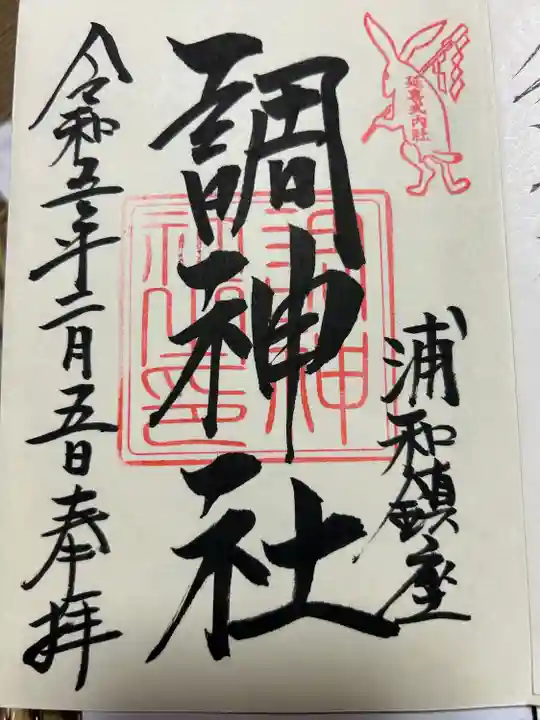 延喜式内社
浦和鎮座
調神社
調神社印
令和五年二月五日奉拝